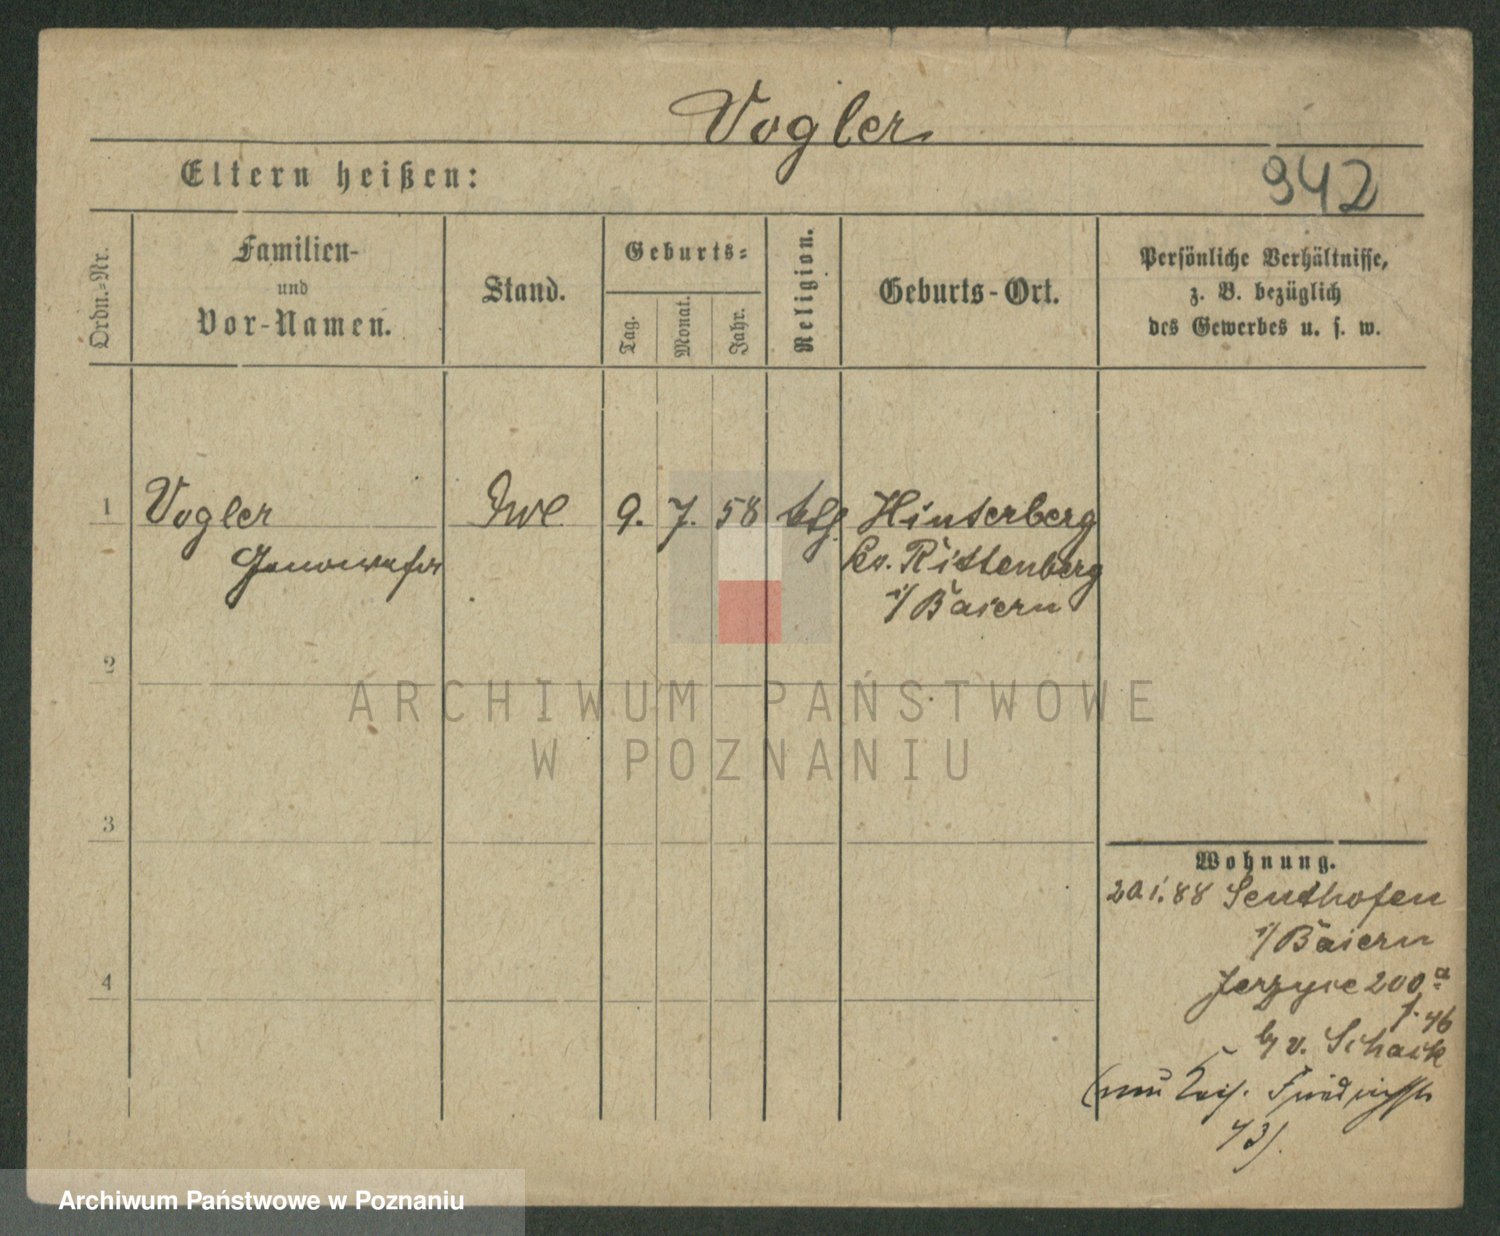 Vogler
942
Eltern heißen:
Ordn.-Nr.
Familien-
und
Vor-Namen.
Stand.
Geburts-
Tag.
Monat.
Jahr.
Religion.
Geburts-Ort.
Persönliche Verhältnisse,
z. B. bezüglich
des Gewerbes u. s. w.
1 Vogler 9. 7. 58 kth. Hinterberg
Genowefa Kr. Rittenberg
i/ Baiern
2
3
4
Wohnung.
20.1.88 Senthofen
i/ Baiern
Jerzyce 200 a
f. 46
b/ v. Schack
(neu Kais. Friedrichstr
43).
ARCHIWUM PAŃSTWOWE
W POZNANIU
Archiwum Państwowe w Poznaniu